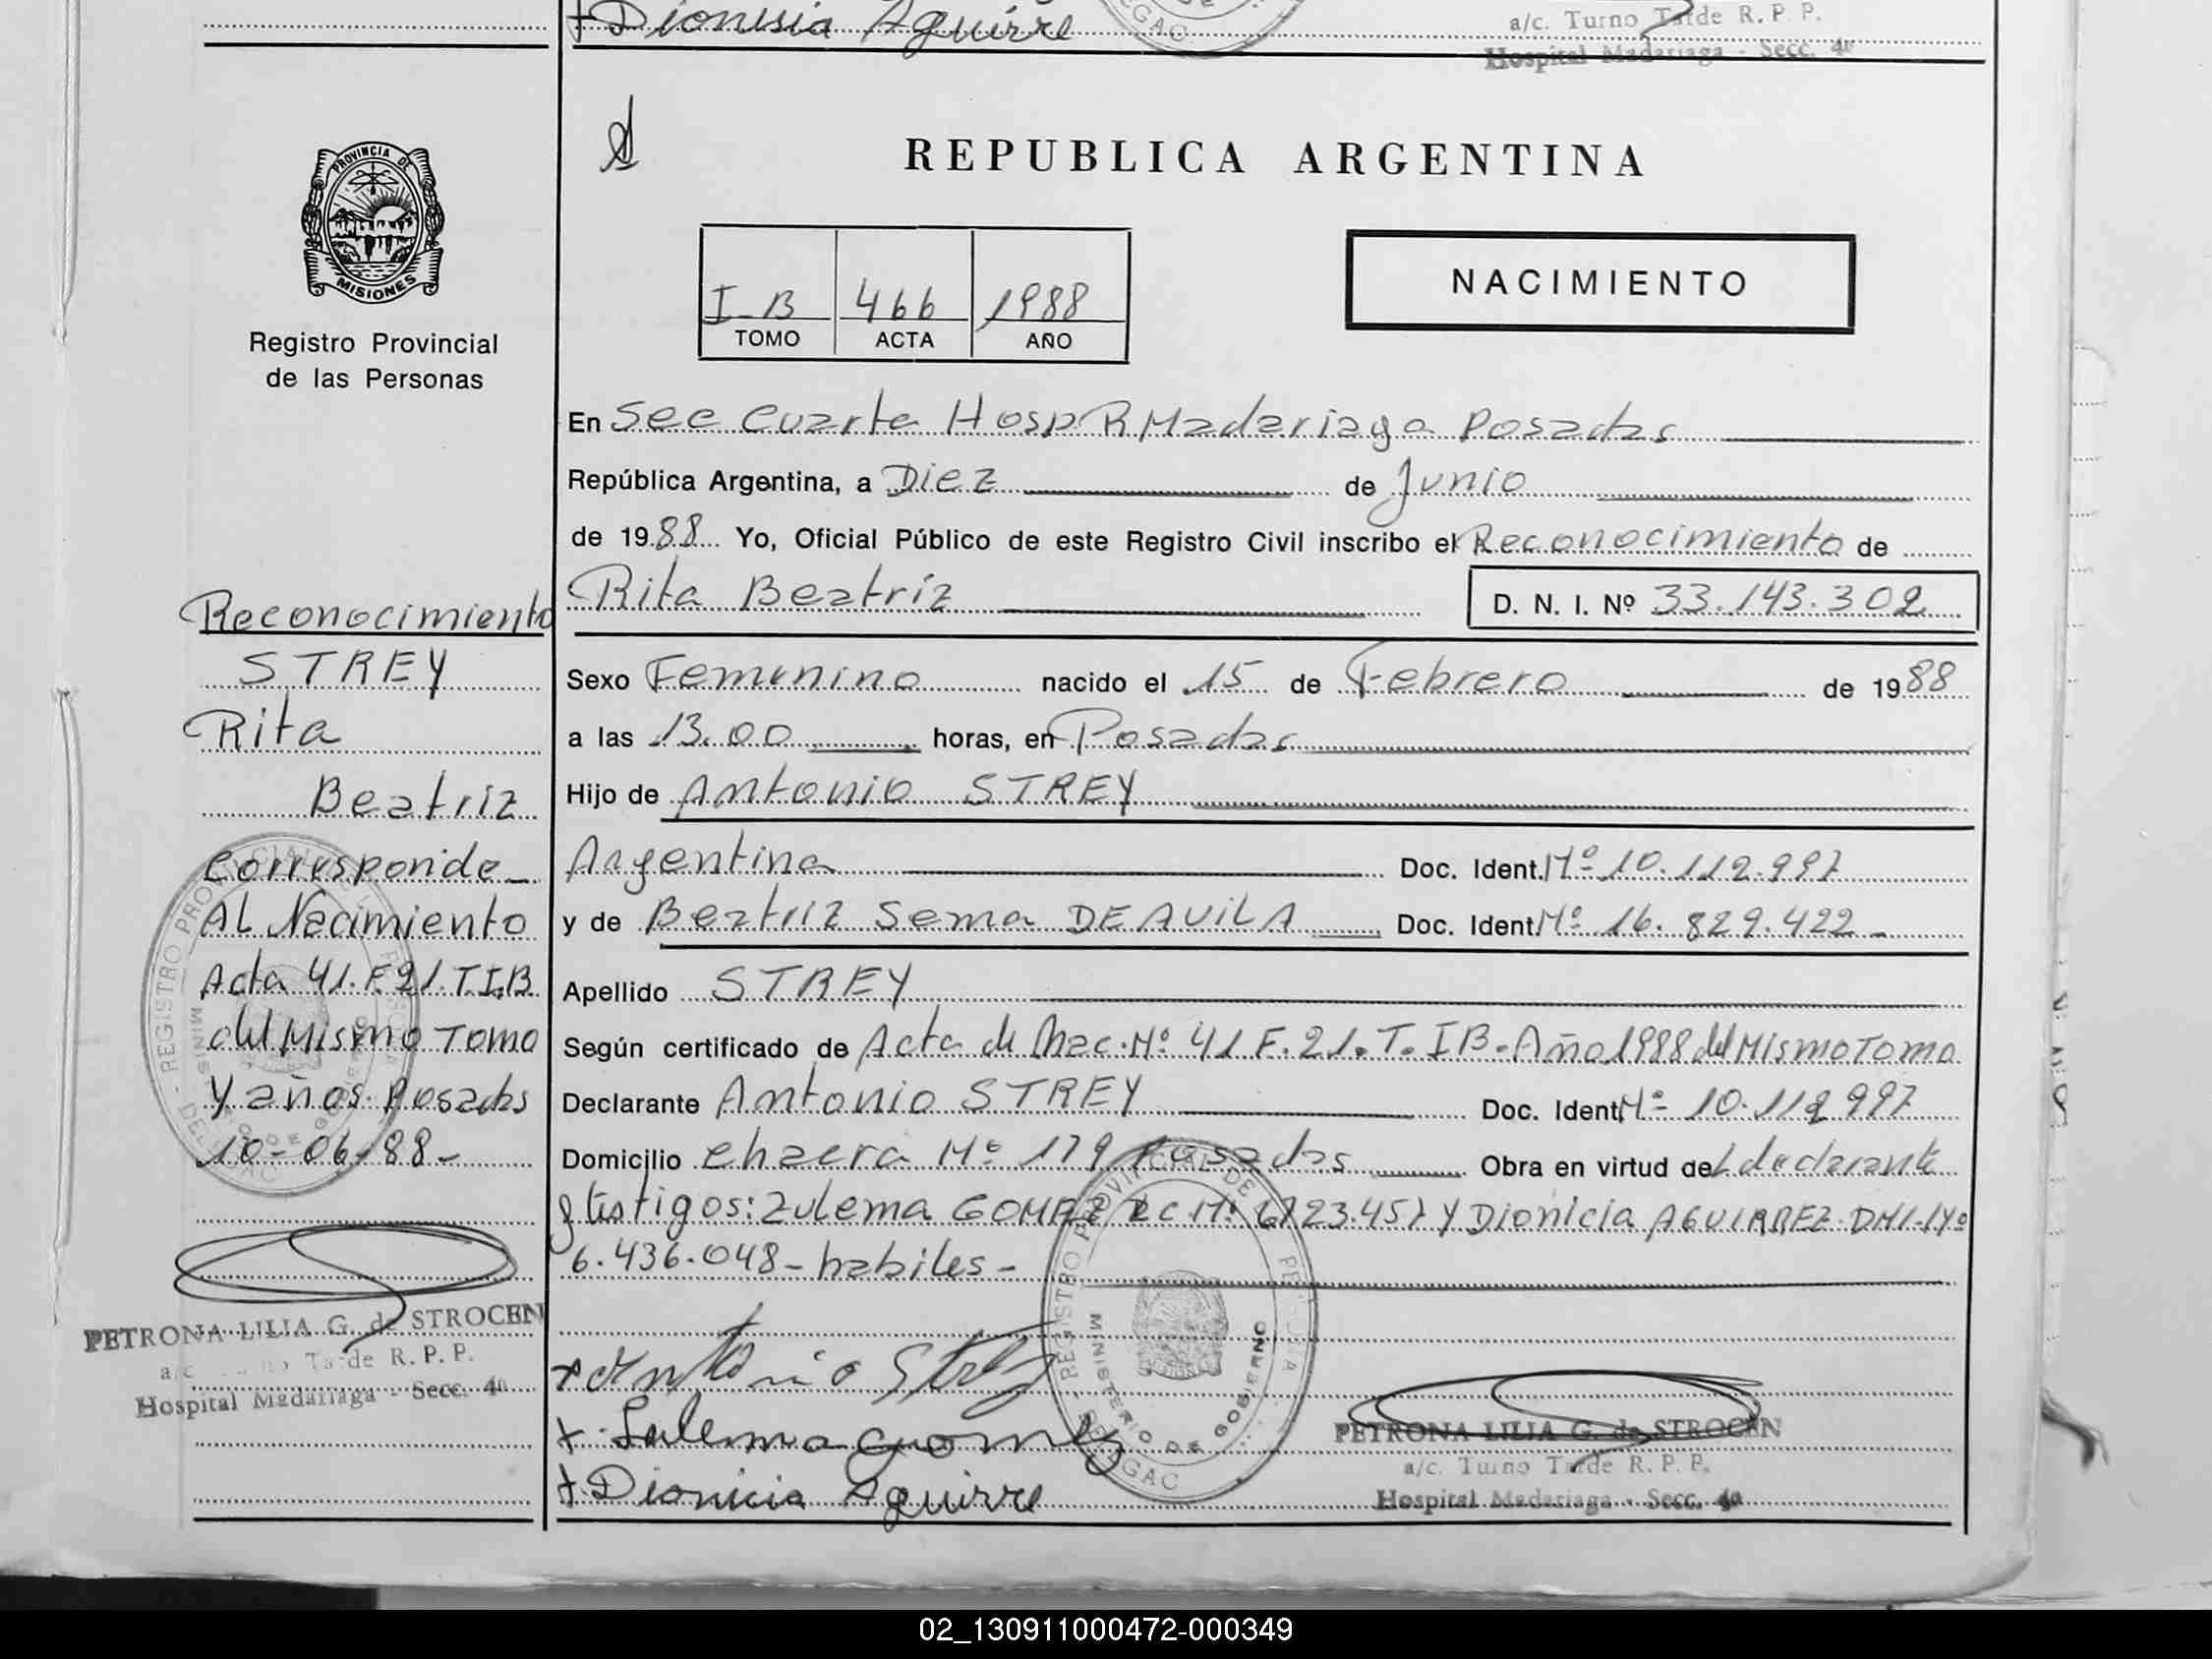 + Dionisia Aguirre
a/c. Turno Tarde R. P. P.
Hospital Madariaga - Secc. 4ª
PROVINCIA DE
MISIONES
Registro Provincial
de las Personas
REPUBLICA ARGENTINA
I-B 466 1988
TOMO ACTA AÑO
NACIMIENTO
En Sec Cuarta Hosp R Madariaga Posadas
República Argentina, a Diez de Junio
de 1988 Yo, Oficial Público de este Registro Civil inscribo el Reconocimiento de
Rita Beatriz D. N. I. Nº 33.143.302
Sexo Femenino nacido el 15 de Febrero de 1988
a las 13.00 horas, en Posadas
Hijo de Antonio STREY
Argentina Doc. Ident. Nº 10.112.997
y de Beatriz Sema DE AVILA Doc. Ident Nº 16.829.422 -
Apellido STREY
Según certificado de Acta de Nac. Nº 41 F. 21. T. I B. Año 1988 del Mismo Tomo
Declarante Antonio STREY Doc. Ident Nº 10.112 997
Domicilio chacra Nº 179 Posadas Obra en virtud del declarante
y testigos: Zulema GOMEZ LC Nº 6723.457 y Dionicia AGUIRREZ DNI-Nº
6.436.048 - habiles -
Reconocimiento
STREY
Rita
Beatriz
Corresponde
Al Nacimiento
Acta 41. F. 21. T.I.B
del Mismo Tomo
y años. Posadas
10-06-88-
PETRONA LILIA G. de STROCEN
a/c Turno Tarde R. P. P.
Hospital Madariaga - Secc. 4ª
+ Antonio Strey
+ Sulema Gomez
+ Dionicia Aguirre
REGISTRO PROVINCIAL DE
MINISTERIO DE GOBIERNO
PETRONA LILIA G. de STROCEN
a/c. Turno Tarde R. P. P.
Hospital Madariaga - Secc. 4ª
02_130911000472-000349